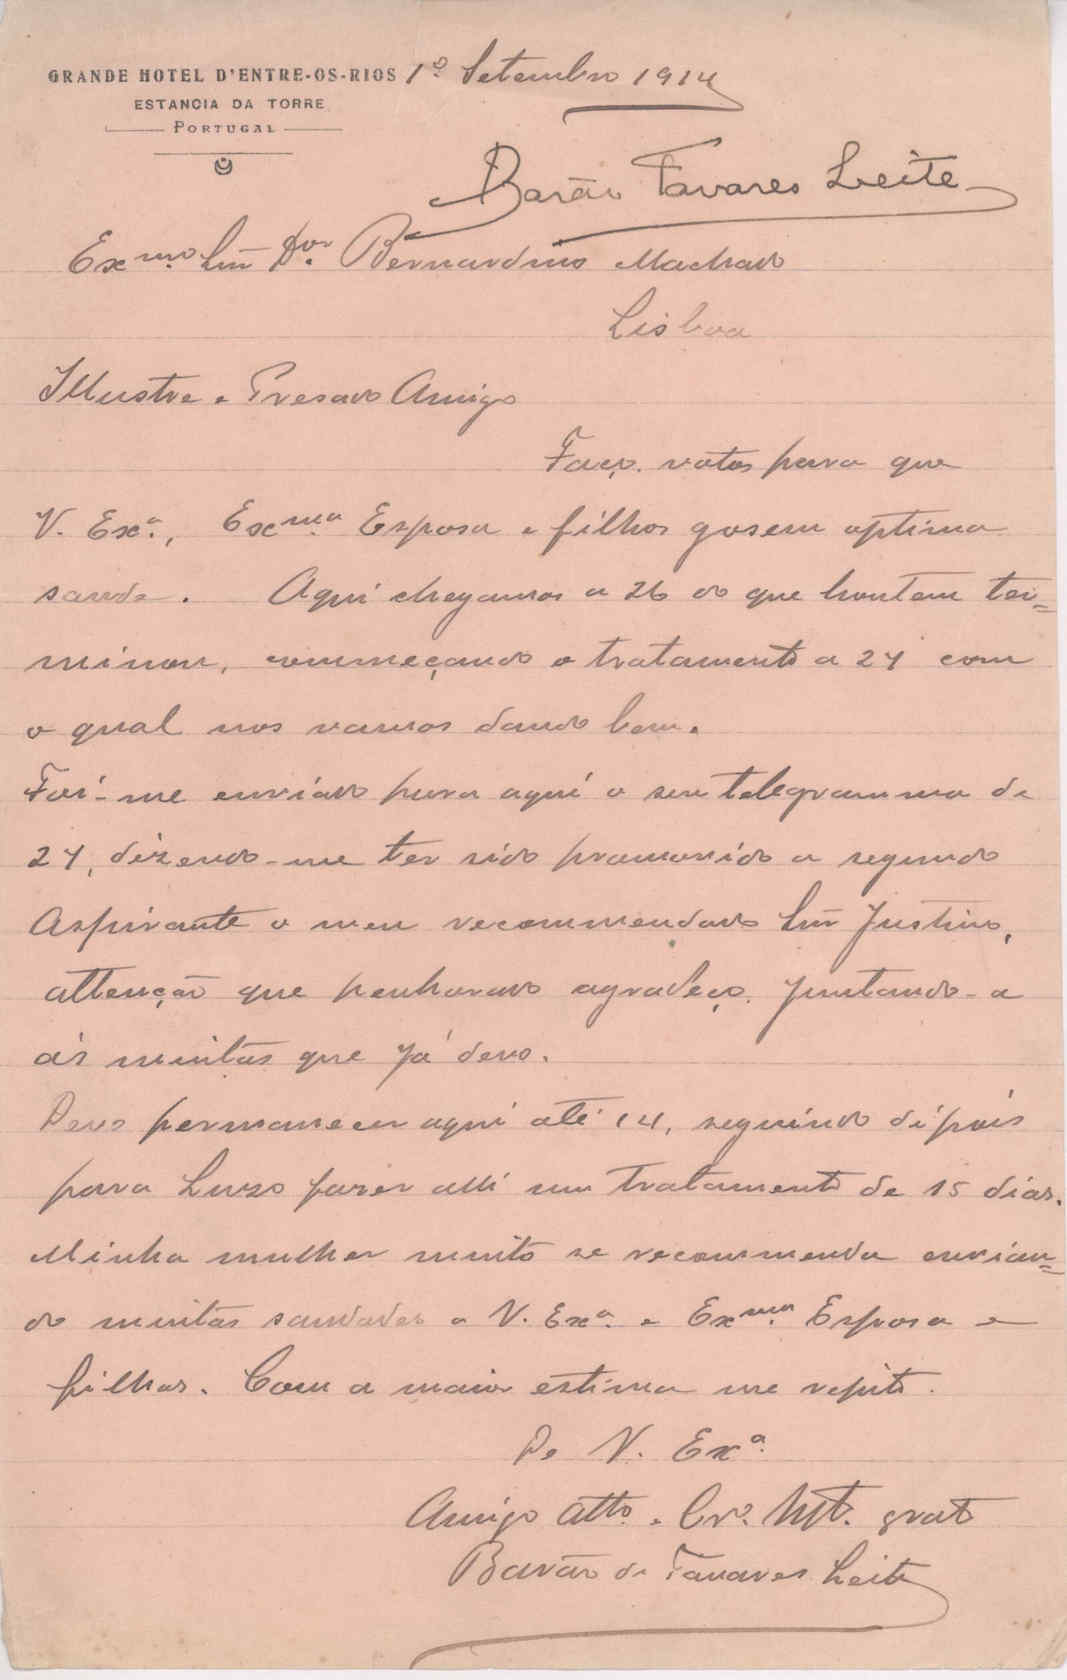 GRANDE HOTEL D'ENTRE-OS-RIOS 1º Setembro 1914
ESTANCIA DA TORRE
PORTUGAL
Barão Tavares Leite
Exmo. Snr Dor. Bernardino Machado
Lisboa
Illustre e Presado Amigo
Faço votos para que
V. Exa., Exma. Esposa e filhos gosem optima
saude. Aqui chegamos a 26 do que hontem ter=
minou, commeçando o tratamento a 27 com
o qual nos vamos dando bem.
Foi-me enviado para aqui o seu telegramma de
27, dizendo-me ter sido promovido a segundo
Aspirante o meu recommendado Snr Justino,
attenção que penhorado agradeço. Juntando-a
ás muitas que já devo.
Devo permanecer aqui até 14, seguindo dipois
para Luzo fazer alli um tratamento de 15 dias.
Minha mulher muito se recommenda envian=
do muitas saudades a V. Exa. e Exma. Esposa e
filhos. Com a maior estima me repito.
De V. Exa.
Amigo atto. e Cro. Mt. grato
Barão de Tavares Leite